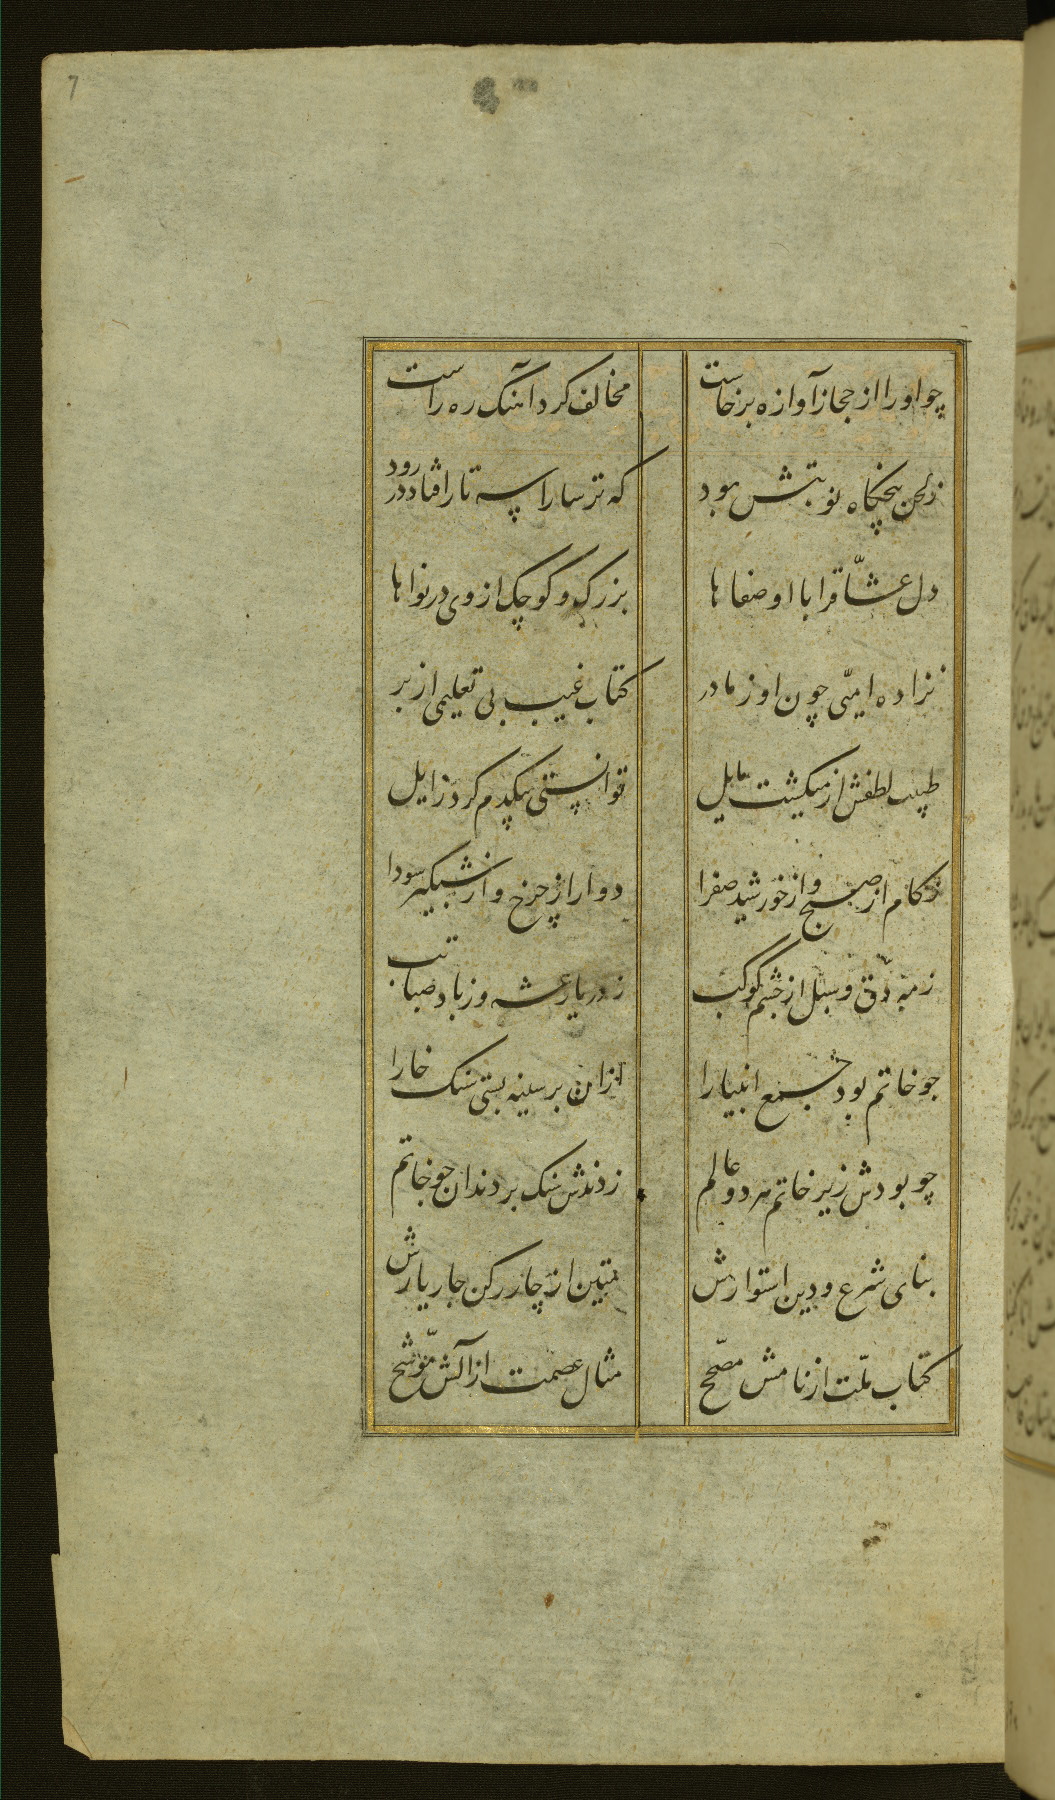 7
چو او را از حجاز آوازه برخاست
مخالف کرد آهنگ ره راست
ز لحن پنجگاه نوبتش بود
که ترسا را سه تار افتاد در رود
دل عشاق را با او صفاها
بزرگ و کوچک از وی در نواها
نزاده امّی چون او ز مادر
کتاب غیب بی تعلیمی از بر
طبیب لطفش ار میگشت مایل
توانستی بیکدم کرد زایل
زکام از صبح و از خورشید صفرا
دوار از چرخ و از شبگیر سودا
ز مه دقّ و سبل از چشم کوکب
ز دریا رعشه و ز باد صبا تب
چو خاتم بود جمع انبیا را
از آن بر سینه بستی سنک خارا
چو بودش زیر خاتم هر دو عالم
زدندش سنک بر دندان چو خاتم
بنای شرع و دین استوارش
متین از چار رکن چار یارش
کتاب ملّت از نامش مصحّح
مثال عصمت از آلش موشّح